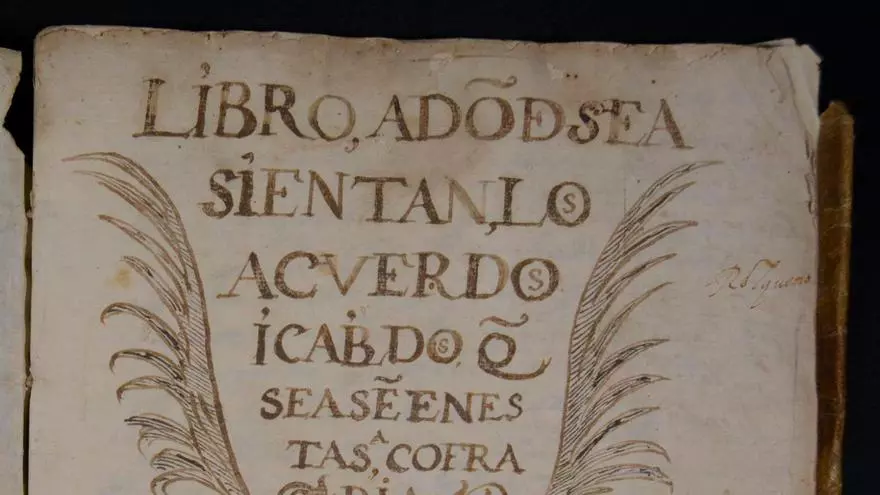 LIBRO, ADÕDESEA
SIENTAN, LOS
ACVERDOS
ICABDOS, Q̃
SEASẼENES
TASᴬ, COFRA